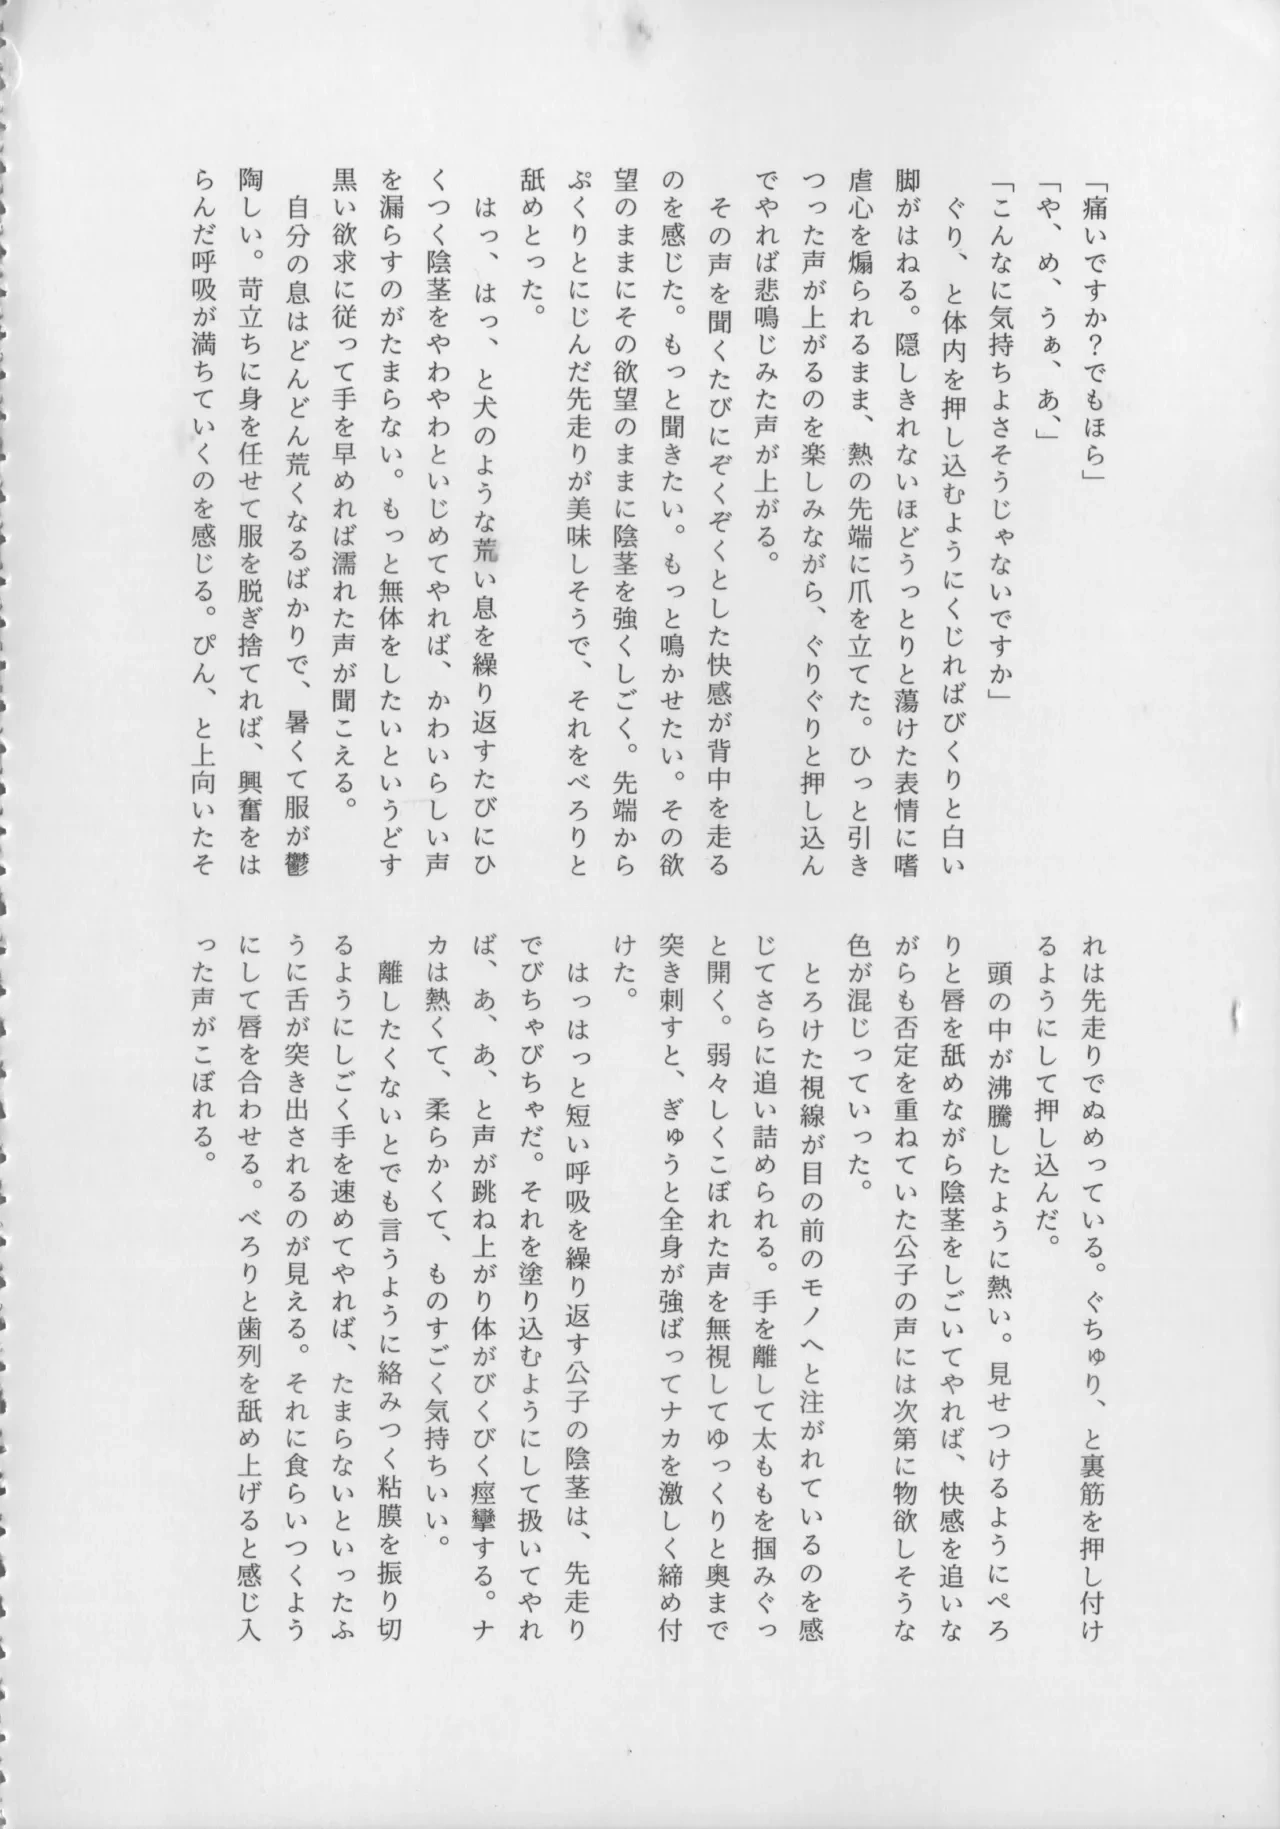 「痛いですか？でもほら」
「や、め、うぁ、あ、」
「こんなに気持ちよさそうじゃないですか」
ぐり、と体内を押し込むようにくじればびくりと白い
脚がはねる。隠しきれないほどうっとりと蕩けた表情に嗜
虐心を煽られるまま、熱の先端に爪を立てた。ひっと引き
つった声が上がるのを楽しみながら、ぐりぐりと押し込ん
でやれば悲鳴じみた声が上がる。
その声を聞くたびにぞくぞくとした快感が背中を走る
のを感じた。もっと聞きたい。もっと鳴かせたい。その欲
望のままにその欲望のままに陰茎を強くしごく。先端から
ぷくりとにじんだ先走りが美味しそうで、それをべろりと
舐めとった。
はっ、はっ、と犬のような荒い息を繰り返すたびにひ
くつく陰茎をやわやわといじめてやれば、かわいらしい声
を漏らすのがたまらない。もっと無体をしたいというどす
黒い欲求に従って手を早めれば濡れた声が聞こえる。
自分の息はどんどん荒くなるばかりで、暑くて服が鬱
陶しい。苛立ちに身を任せて服を脱ぎ捨てれば、興奮をは
らんだ呼吸が満ちていくのを感じる。ぴん、と上向いたそ
れは先走りでぬめっている。ぐちゅり、と裏筋を押し付け
るようにして押し込んだ。
頭の中が沸騰したように熱い。見せつけるようにぺろ
りと唇を舐めながら陰茎をしごいてやれば、快感を追いな
がらも否定を重ねていた公子の声には次第に物欲しそうな
色が混じっていった。
とろけた視線が目の前のモノへと注がれているのを感
じてさらに追い詰められる。手を離して太ももを掴みぐっ
と開く。弱々しくこぼれた声を無視してゆっくりと奥まで
突き刺すと、ぎゅうと全身が強ばってナカを激しく締め付
けた。
はっはっと短い呼吸を繰り返す公子の陰茎は、先走り
でびちゃびちゃだ。それを塗り込むようにして扱いてやれ
ば、あ、あ、と声が跳ね上がり体がびくびく痙攣する。ナ
カは熱くて、柔らかくて、ものすごく気持ちいい。
離したくないとでも言うように絡みつく粘膜を振り切
るようにしごく手を速めてやれば、たまらないといったふ
うに舌が突き出されるのが見える。それに食らいつくよう
にして唇を合わせる。べろりと歯列を舐め上げると感じ入
った声がこぼれる。